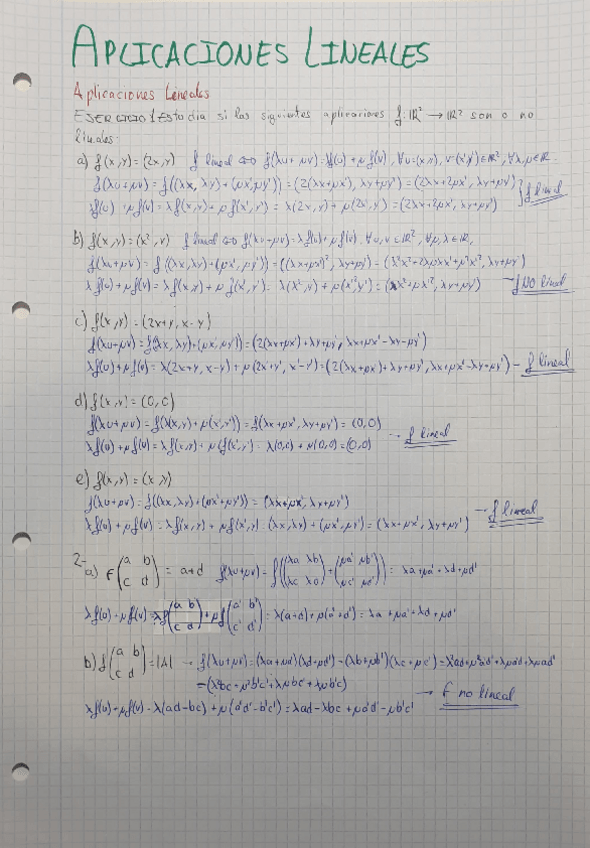 APLICACIONES LINEALES
Aplicaciones Lineales
EJERCICIO 1 Estudia si las siguientes aplicaciones f: ℝ² → ℝ² son o no
lineales.
a) f(x,y) = (2x,y) f lineal ⇔ f(λu+μv) = λf(u)+μf(v), ∀u=(x,y), v=(x',y')∈ℝ², ∀λ,μ∈ℝ.
f(λu+μv) = f((λx,λy)+(μx',μy')) = (2(λx+μx'), λy+μy') = (2λx+2μx', λy+μy')
λf(u)+μf(v) = λf(x,y)+μf(x',y') = λ(2x,y)+μ(2x',y') = (2λx+2μx', λy+μy') } f lineal
b) f(x,y) = (x²,y) f lineal ⇔ f(λu+μv) = λf(u)+μf(v). ∀u,v∈ℝ², ∀μ,λ∈ℝ,
f(λu+μv) = f((λx,λy)+(μx',μy')) = ((λx+μx')², λy+μy') = (λ²x²+2λμxx'+μ²x'², λy+μy')
λf(u)+μf(v) = λf(x,y)+μf(x',y') = λ(x²,y)+μ(x'²,y') = (λx²+μx'², λy+μy') → f NO lineal
c) f(x,y) = (2x+y, x-y)
f(λu+μv) = f((λx,λy)+(μx',μy')) = (2(λx+μx')+λy+μy', λx+μx'-λy-μy')
λf(u)+μf(v) = λ(2x+y, x-y)+μ(2x'+y', x'-y') = (2(λx+μx')+λy+μy', λx+μx'-λy+μy') → f lineal
d) f(x,y) = (0,0)
f(λu+μv) = f(λ(x,y)+μ(x',y')) = f(λx+μx', λy+μy') = (0,0)
λf(u)+μf(v) = λf(x,y)+μf(x',y') = λ(0,0)+μ(0,0) = (0,0) → f lineal
e) f(x,y) = (x,y)
f(λu+μv) = f((λx,λy)+(μx'+μy')) = (λx+μx', λy+μy')
λf(u)+μf(v) = λf(x,y)+μf(x',y') = (λx,λy)+(μx',μy') = (λx+μx', λy+μy') → f lineal
2- a) f(a b
c d) = a+d f(λu+μv) = f((λa λb
λc λd)+(μa' μb'
μc' μd')) = λa+μa'+λd+μd'
λf(u)+μf(v) = λf(a b
c d)+μf(a' b'
c' d') = λ(a+d)+μ(a'+d') = λa+μa'+λd+μd'
b) f(a b
c d) = |A| → f(λu+μv) = (λa+μa')(λd+μd')-(λb+μb')(λc+μc') = λ²ad+μ²a'd'+λμa'd+λμad'
-(λ²bc+μ²b'c'+λμbc'+λμb'c)
λf(u)+μf(v) = λ(ad-bc)+μ(a'd'-b'c') = λad-λbc+μa'd'-μb'c' → f no lineal